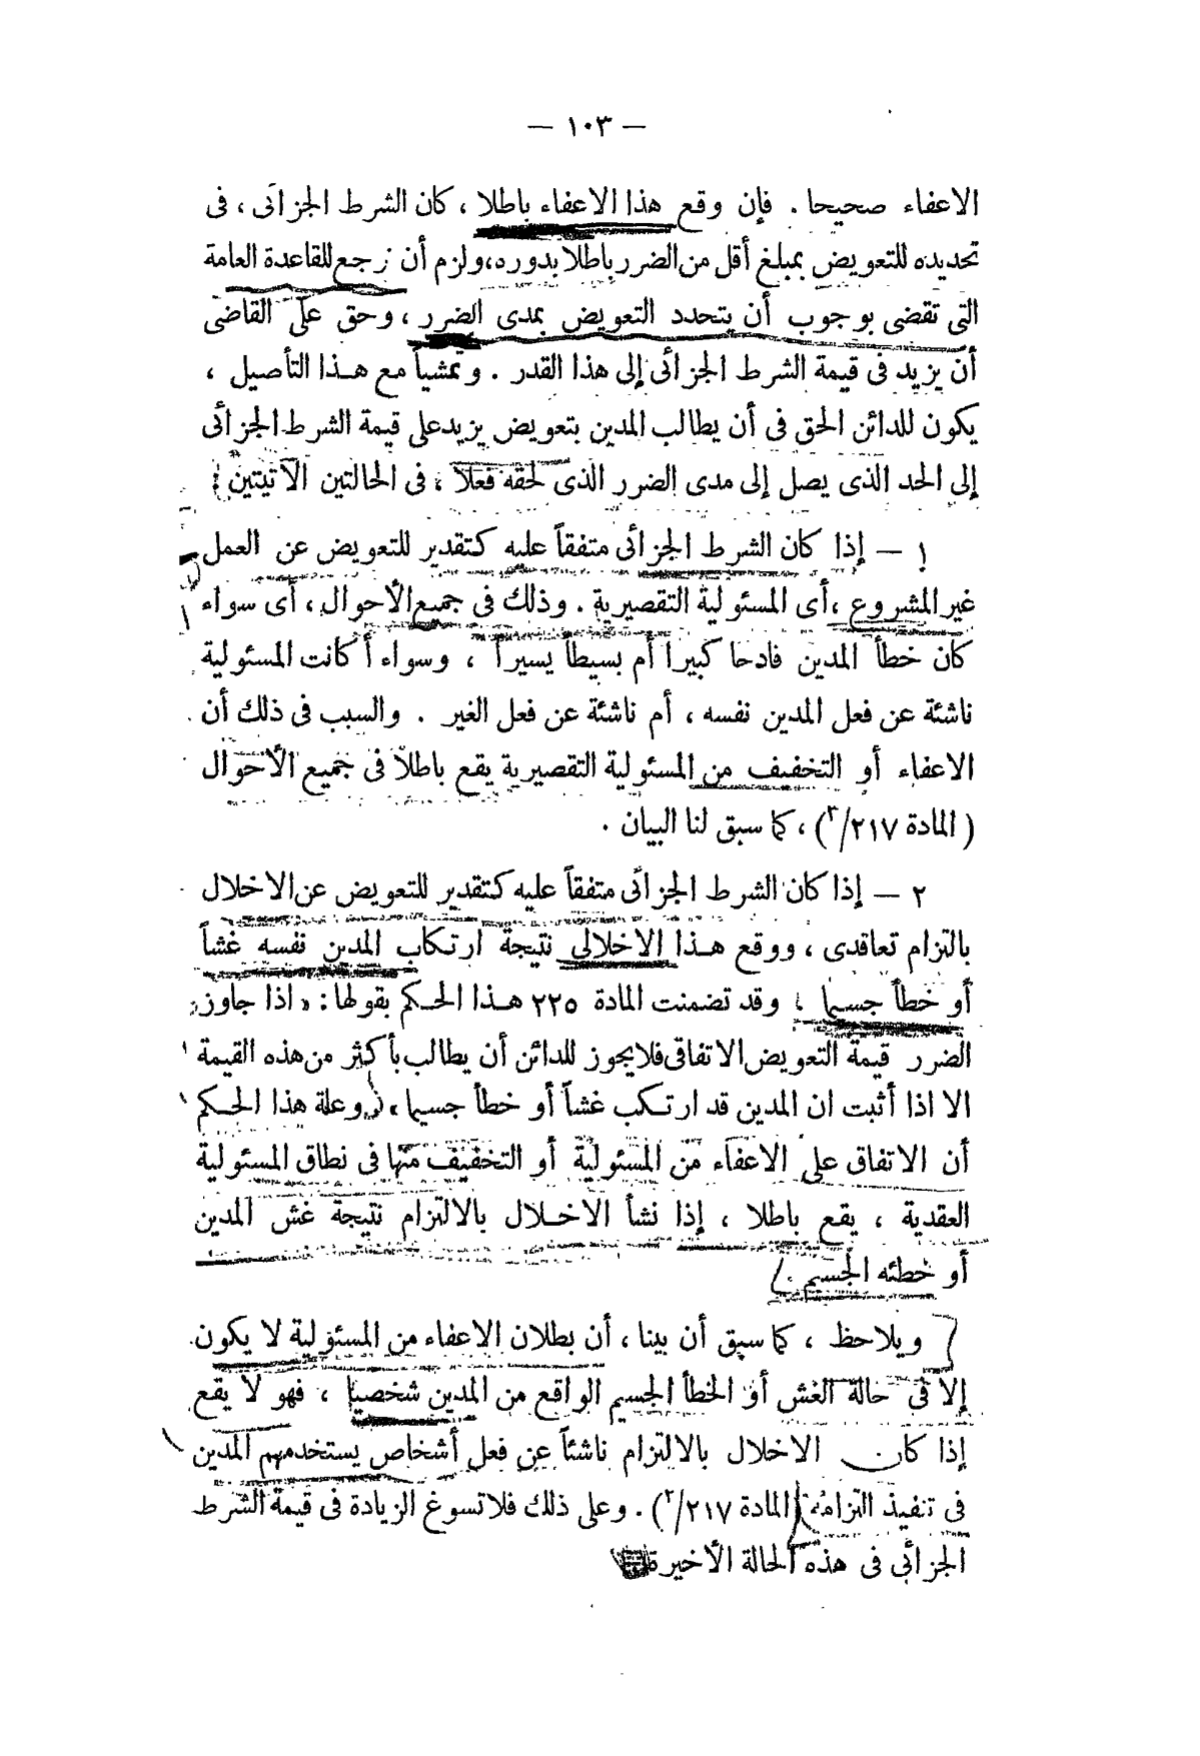 — ١٠٣ —
الاعفاء صحيحا . فإن وقع هذا الاعفاء باطلا ، كان الشرط الجزائى ، فى
تحديده للتعويض بمبلغ أقل من الضرر باطلا بدوره، ولزم أن نرجع للقاعدة العامة
التى تقضى بوجوب أن يتحدد التعويض بمدى الضرر ، وحق على القاضى
أن يزيد فى قيمة الشرط الجزائى إلى هذا القدر . وتمشياً مع هذا التأصيل ،
يكون للدائن الحق فى أن يطالب المدين بتعويض يزيد على قيمة الشرط الجزائى
إلى الحد الذى يصل إلى مدى الضرر الذى لحقه فعلا ، فى الحالتين الآتيتين :
١ — إذا كان الشرط الجزائى متفقاً عليه كتقدير للتعويض عن العمل
غير المشروع ، أى المسئولية التقصيرية . وذلك فى جميع الأحوال ، أى سواء
كان خطأ المدين فادحا كبيرا أم بسيطاً يسيراً ، وسواء أكانت المسئولية
ناشئة عن فعل المدين نفسه ، أم ناشئة عن فعل الغير . والسبب فى ذلك أن
الاعفاء أو التخفيف من المسئولية التقصيرية يقع باطلا فى جميع الأحوال
( المادة ٢١٧/٣) ، كما سبق لنا البيان .
٢ — إذا كان الشرط الجزائى متفقاً عليه كتقدير للتعويض عن الاخلال
بالتزام تعاقدى ، ووقع هذا الاخلال نتيجة ارتكاب المدين نفسه غشاً
أو خطأ جسيما ، وقد تضمنت المادة ٢٢٥ هذا الحكم بقولها : « اذا جاوز
الضرر قيمة التعويض الاتفاقى فلا يجوز للدائن أن يطالب بأكثر من هذه القيمة
الا اذا أثبت ان المدين قد ارتكب غشاً أو خطأ جسيما ، وعلة هذا الحكم
أن الاتفاق على الاعفاء من المسئولية أو التخفيف منها فى نطاق المسئولية
العقدية ، يقع باطلا ، إذا نشأ الاخلال بالالتزام نتيجة غش المدين
أو خطئه الجسيم .
ويلاحظ ، كما سبق أن بينا ، أن بطلان الاعفاء من المسئولية لا يكون
إلا فى حالة الغش أو الخطأ الجسيم الواقع من المدين شخصيا ، فهو لا يقع
إذا كان الاخلال بالالتزام ناشئاً عن فعل أشخاص يستخدمهم المدين
فى تنفيذ التزامه (المادة ٢١٧/٢) . وعلى ذلك فلا تسوغ الزيادة فى قيمة الشرط
الجزائى فى هذه الحالة الأخيرة